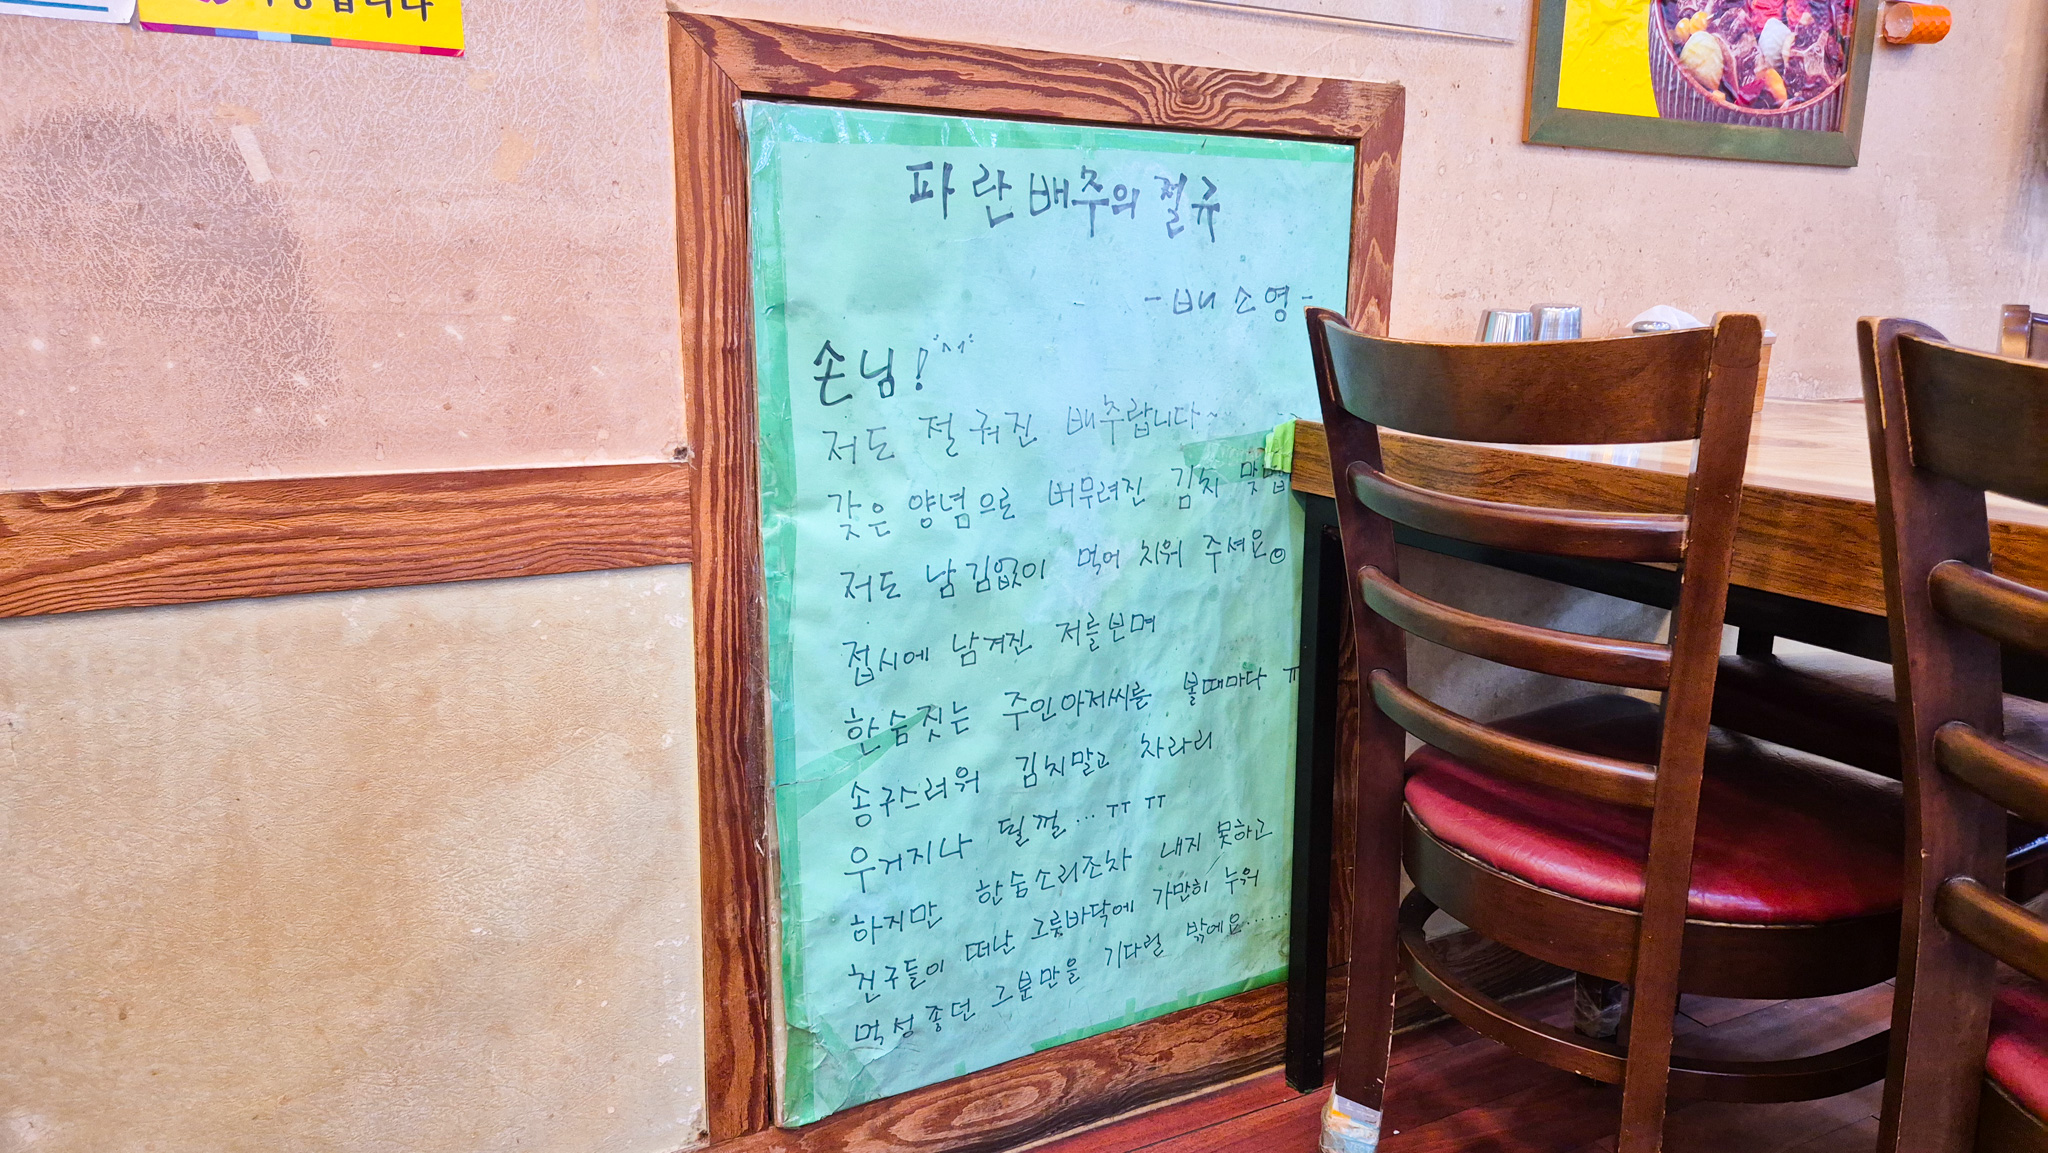 파란 배추의 절규
- 배 소 영 -
손님! ^^
저도 절궈진 배추랍니다~
갖은 양념으로 버무려진 김치
저도 남김없이 먹어 치워 주셔요。
접시에 남겨진 저를보며
한숨짓는 주인아저씨를 볼때마다 ㅠ
송구스러워 김치말고 차라리
우거지나 될껄... ㅠㅠ
하지만 한숨소리조차 내지 못하고
친구들이 떠난 그릇바닥에 가만히 누워
먹성좋던 그분만을 기다릴 밖에요.......